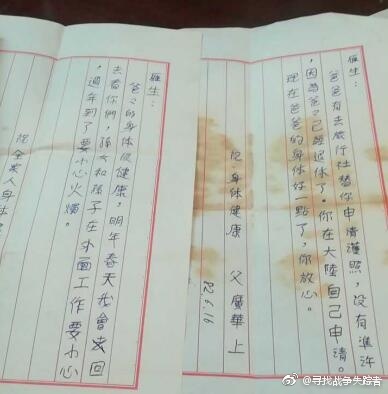 雁生：
爸爸有去旅行社替你申請護照，没有准許
，因為爸々已經退休了。你在大陸自己申请。
現在爸爸的身体好一點了，你放心。
祝·身体健康 父 廣華 上
82.6.16
雁生：
爸々的身体很健康，明年春天我會去回
去看你們，孫女和孫子在外面工作要小心
，過年到了要小心火燭。
祝全家人身体
@寻找战争失踪者